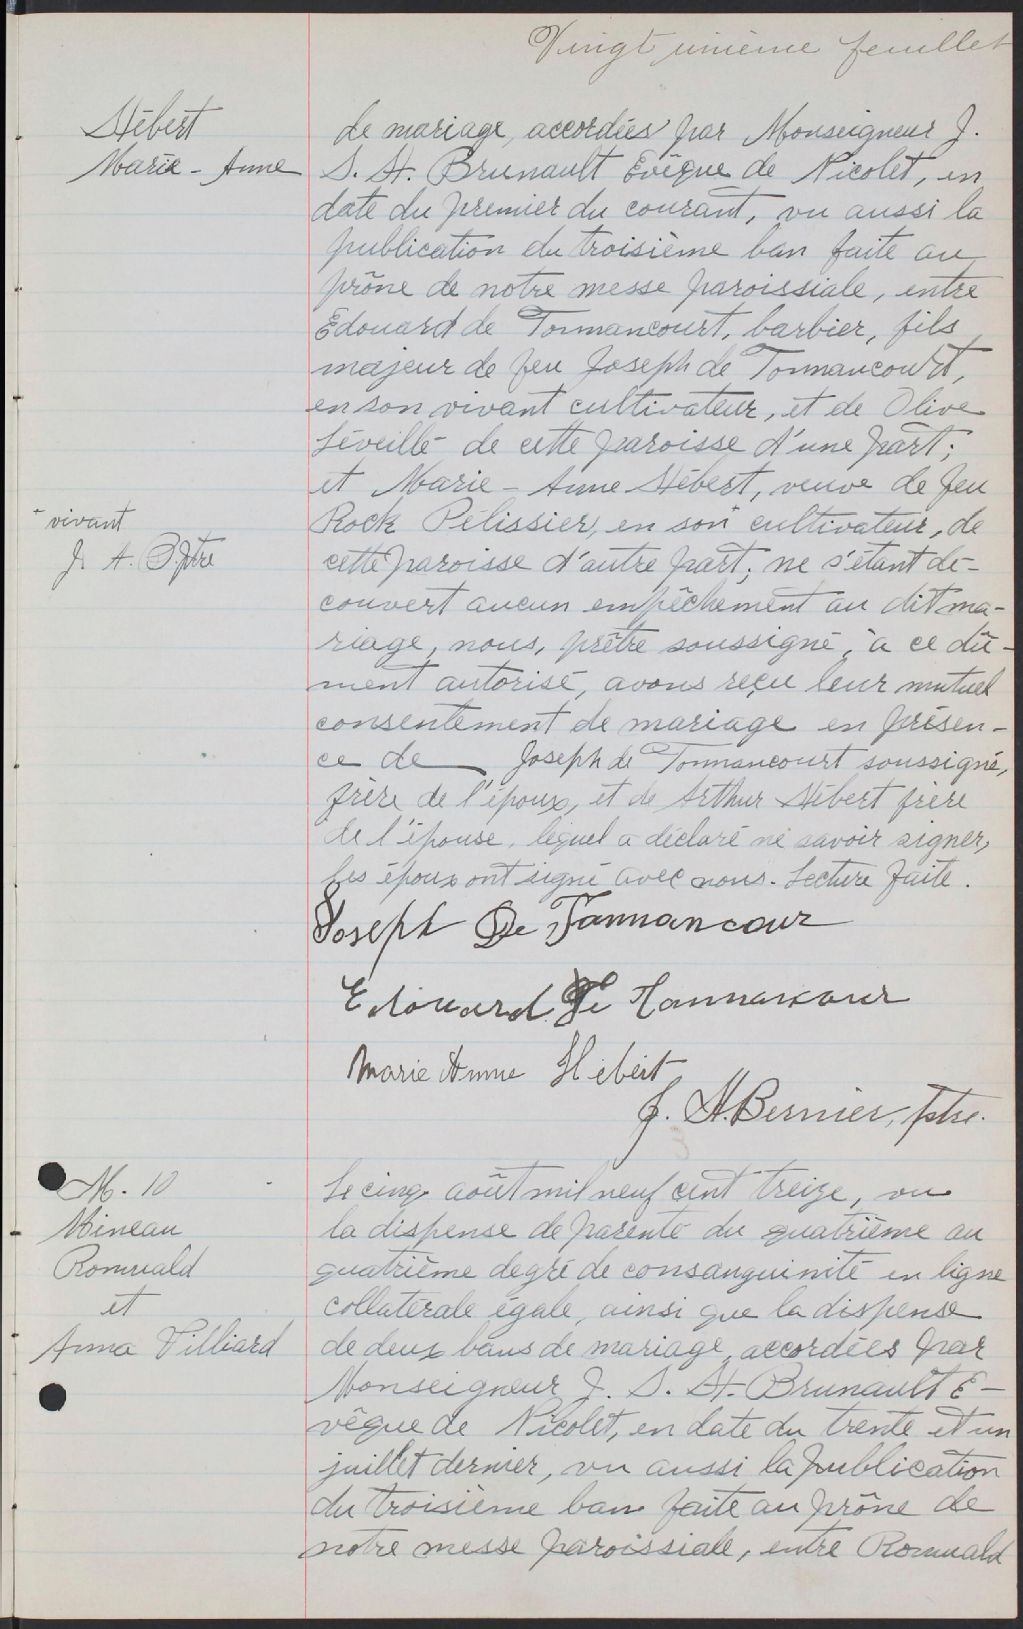 Vingt unième feuillet
Hébert
Marie - Anne
de mariage, accordées par Monseigneur J.
S. H. Brunault Evêque de Nicolet, en
date du premier du courant, vu aussi la
publication du troisième ban faite au
prône de notre messe paroissiale, entre
Edouard de Tonnancourt, barbier, fils
majeur de feu Joseph de Tonnancourt,
en son vivant cultivateur, et de Olive
Léveillé de cette paroisse d'une part;
et Marie - Anne Hébert, veuve de feu
Rock Pélissier, en son cultivateur, de
vivant
J. H. B ptre
cette paroisse d'autre part; ne s'étant dé-
couvert aucun empêchement au dit ma-
riage, nous, prêtre soussigné, à ce dû-
ment autorisé, avons reçu leur mutuel
consentement de mariage en présen-
ce de Joseph de Tonnancourt soussigné,
frère de l'époux, et de Arthur Hébert frère
de l'épouse, lequel a déclaré ne savoir signer,
Les époux ont signé avec nous. Lecture faite.
Joseph De Tannancour
Edouard De Tannancour
Marie Anne Hebert
J. H. Bernier, ptre.
M. 10
Mineau
Romuald
et
Anna Villiard
Le cinq août mil neuf cent treize, vu
la dispense de parenté du quatrième au
quatrième degré de consanguinité en ligne
collatérale égale, ainsi que la dispense
de deux bans de mariage, accordées par
Monseigneur J. S. H. Brunault E-
vêque de Nicolet, en date du trente et un
juillet dernier, vu aussi la publication
du troisième ban faite au prône de
notre messe paroissiale, entre Romuald